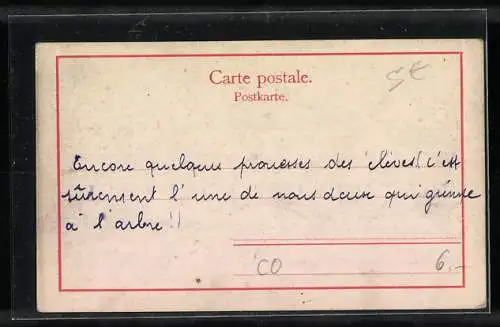 Carte postale.
Postkarte.
5€
Encore quelques prouesses des élèves! c'est
sûrement l'une de nous deux qui grimpe
à l'arbre!!
CO
6,-